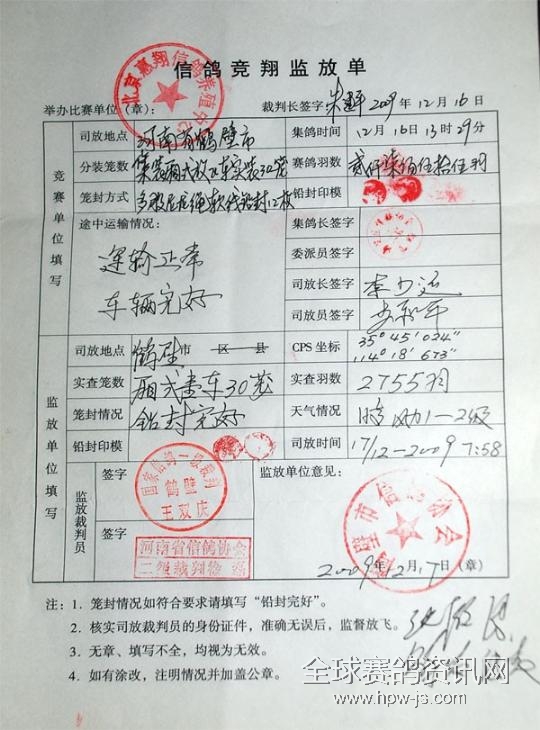 信鸽竞翔监放单
北京惠翔信鸽养殖中心
举办比赛单位（章）： 裁判长签字 2009年12月16日
竞赛单位填写
司放地点 河南省鹤壁市 集鸽时间 12月16日13时29分
分装笼数 赛鸽羽数 贰仟柒佰伍拾伍羽
笼封方式 铅封印模
途中运输情况： 集鸽长签字
运输正常 委派员签字
车辆完好 司放长签字
司放员签字
监放单位填写
司放地点 鹤壁市 区 县 CPS 坐标 35°45′024″
114°18′673″
实查笼数 厢式套车30笼 实查羽数 2755羽
笼封情况 铅封完好 天气情况 晴 风力1-2级
铅封印模 司放时间 17/12-2009 7:58
监放裁判员
签字 监放单位意见：
国家信鸽一级裁判
鹤壁
王双庆
签字
河南省信鸽协会
二级裁判
鹤壁市信鸽协会
2009年12月17日（章）
注：1．笼封情况如符合要求请填写“铅封完好”。
2．核实司放裁判员的身份证件，准确无误后，监督放飞。
3．无章、填写不全，均视为无效。
4．如有涂改，注明情况并加盖公章。
全球赛鸽资讯网
www.hpw-js.com